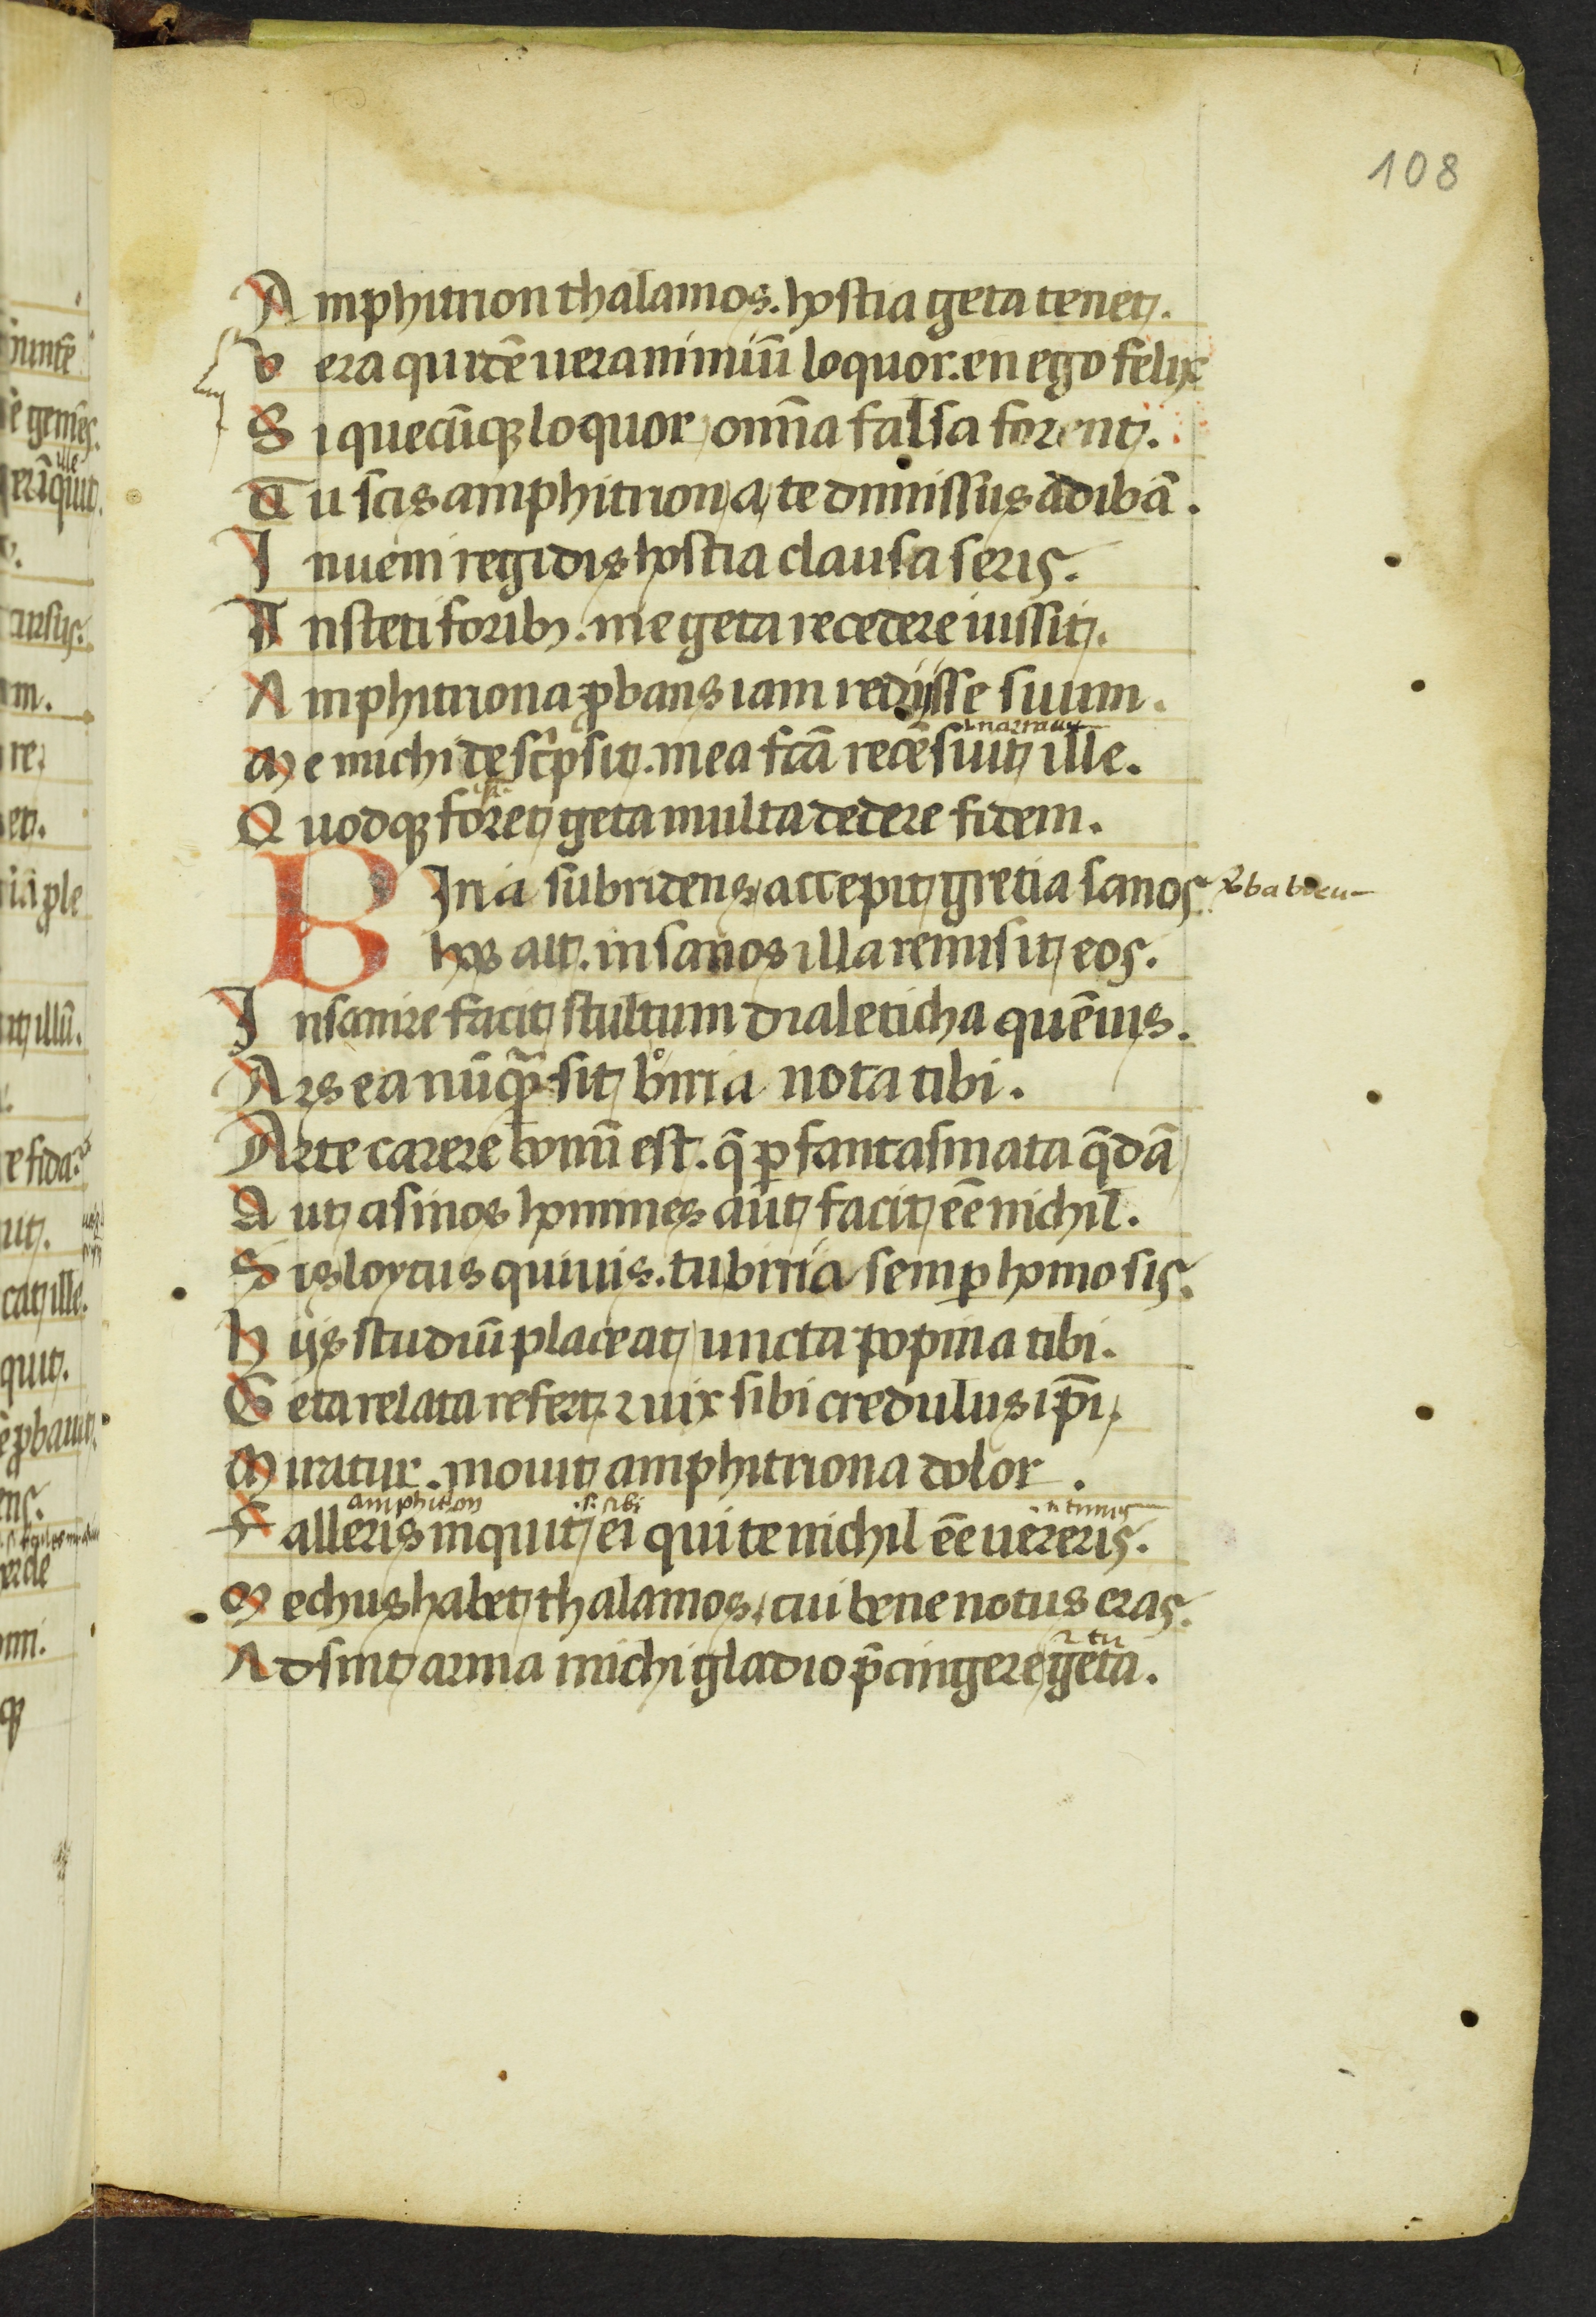 108
Amphitrion thalamos. hostia geta tenet.
Vera quidē uera nimiū loquor. en ego felix
Si quecūqꝫ loquor omīa falsa forent.
Tu scis amphitrion a te dimissus adibā.
Inueni regidis hostia clausa seris.
Insteti foribꝫ. me geta recedere iussit.
Amphitriona ꝓbans iam redijsse suum.
narrauit
Me michi descⁱpsit. mea fcā recēsuit ille.
Quodqꝫ foret geta multa dedere fidem.
BIria subridens accepit gretia sanos
hos ait. insanos illa remisit eos.
Insanire facit stultum dialeticha quēuis.
Ars ea nūqᷓ sit biria nota tibi.
Arte carere bonū est. q̄ ꝑ fantasmata q̄dā
Aut asinos homines aut facit eē nichil.
Sis loycus quiuis. tu birria semꝑ homo sis.
hijs studiū placeat uncta popina tibi.
Geta relata refert. ⁊ uix sibi credulus ip̄i
Miratur. mouit amphitriona dolor.
amphitrion .s. sibi
Falleris inquit ei qui te nichil eē uereris.
Mechus habet thalamos. cui bene notus eras.
⁊ tu
Adsint arma michi gladio p̄cingere geta.